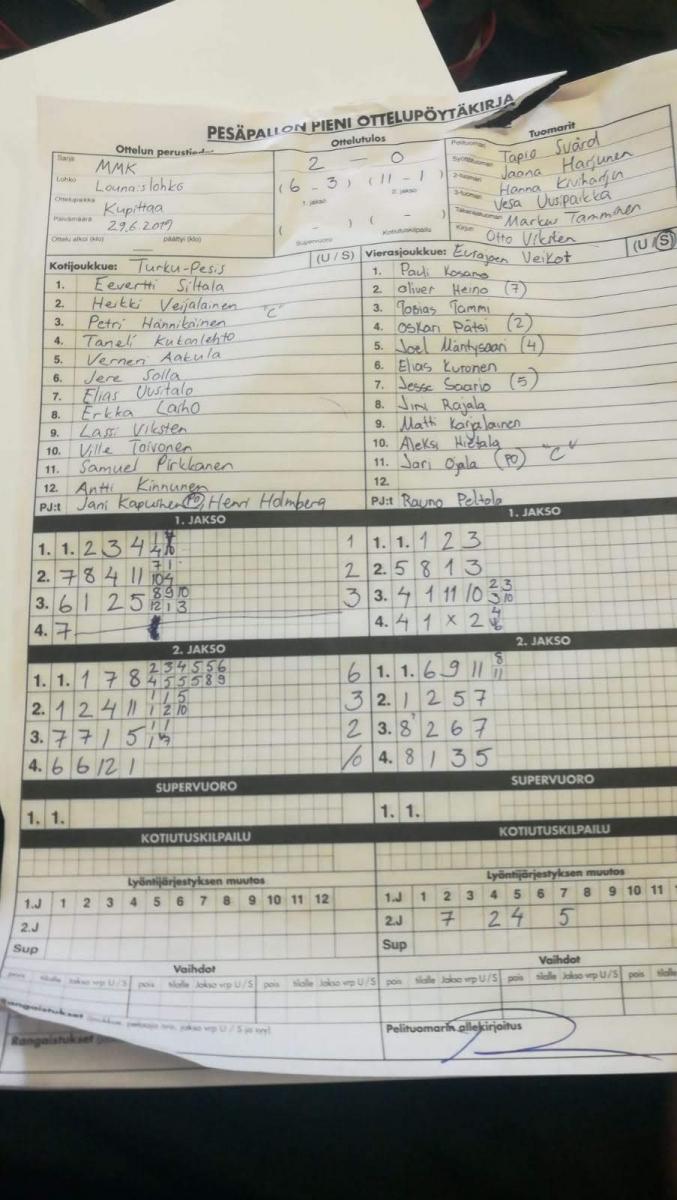 PESÄPALLON PIENI OTTELUPÖYTÄKIRJA
Ottelun
Ottelutulos
Tuomarit
Sarja MMK
Lohko Lounaislohko
Ottelupaikka Kupittaa
Päivämäärä 29.6.2019
Ottelu alkoi (klo) päättyi (klo)
2 - 0
(6 - 3) (11 - 1)
1. jakso 2. jakso
( - ) ( - )
Supervuoro Kotiutuskilpailu
Pelituomari Tapio Svärd
Syöttötuomari Jaana Harjunen
2-tuomari Hanna Kiviharju
3-tuomari Vesa Uusipaikka
Takarajatuomari Markus Tamminen
Kirjuri Otto Viksten
Kotijoukkue: Turku-Pesis (U / S)
1. Eevertti Siltala
2. Heikki Veijalainen "C"
3. Petri Hännikäinen
4. Taneli Kukonlehto
5. Verneri Aakula
6. Jere Solla
7. Elias Uusitalo
8. Erkka Lasho
9. Lassi Viksten
10. Ville Toivonen
11. Samuel Pirkkanen
12. Antti Kinnunen
PJ:t Jani (PO), Henri Holmberg
Vierasjoukkue: Eurajoen Veikot (U / S)
1. Pauli Kosano
2. Oliver Heino (7)
3. Tobias Tammi
4. Oskari Pätsi (2)
5. Joel Mäntysaari (4)
6. Elias Kuronen
7. Jesse Saario (5)
8. Jiri Rajala
9. Matti Karjalainen
10. Aleksi Hietala
11. Jari Ojala (PO) "C"
12.
PJ:t Rauno Peltola
1. JAKSO
1. 1. 2 3 4 1
2. 7 8 4 11 2
3. 6 1 2 5 3
4. 7
1. JAKSO
1. 1. 1 2 3
2. 5 8 1 3
3. 4 1 11 10
4. 4 1 x 2
2. JAKSO
1. 1. 1 7 8 2 3 4 5 5 6 6
4 5 5 5 8 9
2. 1 2 4 11 1 1 5 3
1 2 10
3. 7 7 1 5 2
4. 6 6 12 1
2. JAKSO
1. 1. 6 9 11 8
11
2. 1 2 5 7
3. 8 2 6 7
4. 8 1 3 5
SUPERVUORO
1. 1.
SUPERVUORO
1. 1.
KOTIUTUSKILPAILU
KOTIUTUSKILPAILU
Lyöntijärjestyksen muutos
1.J 1 2 3 4 5 6 7 8 9 10 11 12
2.J
Sup
Lyöntijärjestyksen muutos
1.J 1 2 3 4 5 6 7 8 9 10 11
2.J 7 2 4 5
Sup
Vaihdot
pois tilalle Jakso vrp U / S pois tilalle Jakso vrp U / S pois tilalle Jakso vrp U / S
Vaihdot
pois tilalle Jakso vrp U / S pois tilalle Jakso vrp U / S pois tilalle
Rangaistukset
Rangaistukset
Pelituomarin allekirjoitus